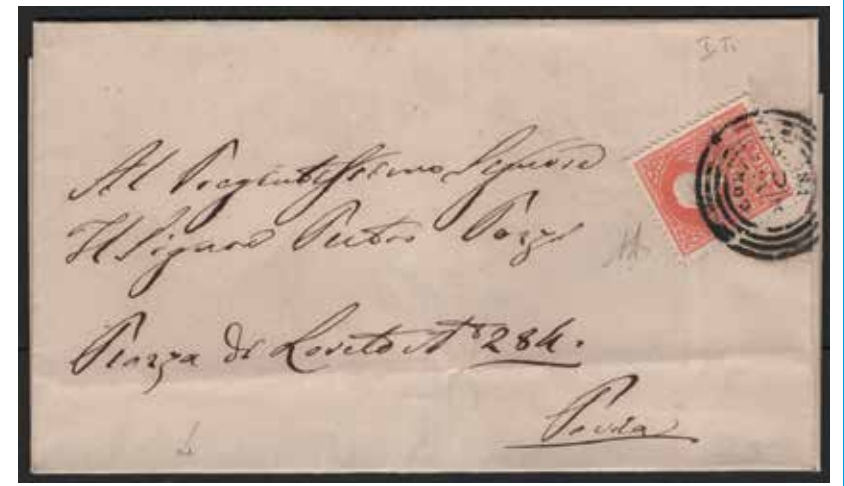 Al Pregiatissimo Signore
Il Signore Pietro Pozzi
Piazza di Loreto N° 284.
Pavia